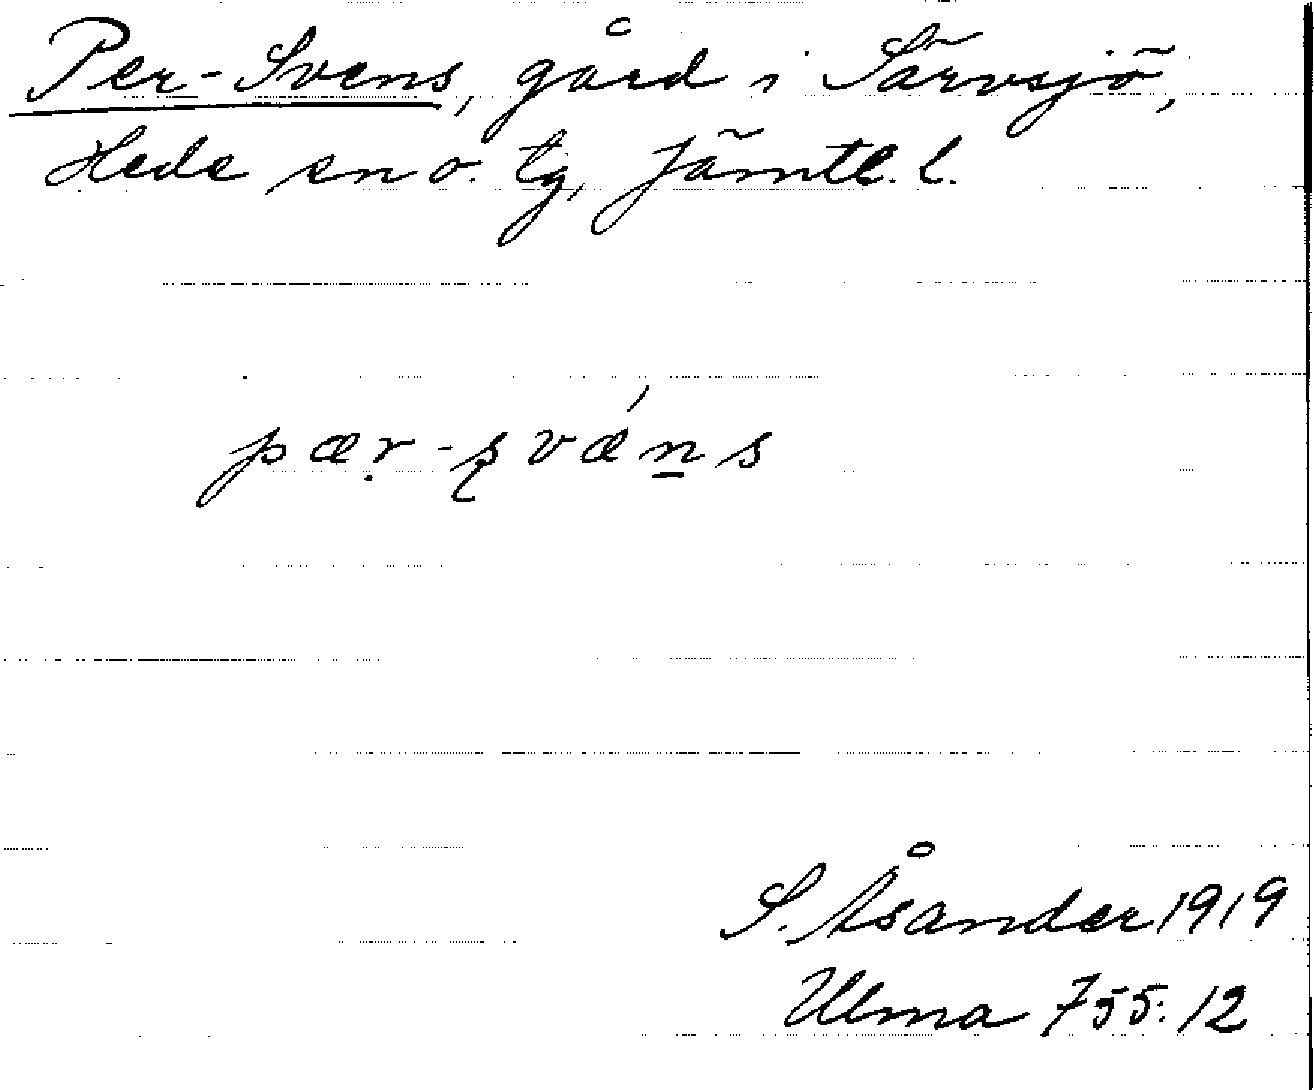 Per-Svens, gård i Särvsjö,
Hede sn o. tg, Jämtl. l.
pær-sváns
S. Åsander 1919
Ulma 755:12